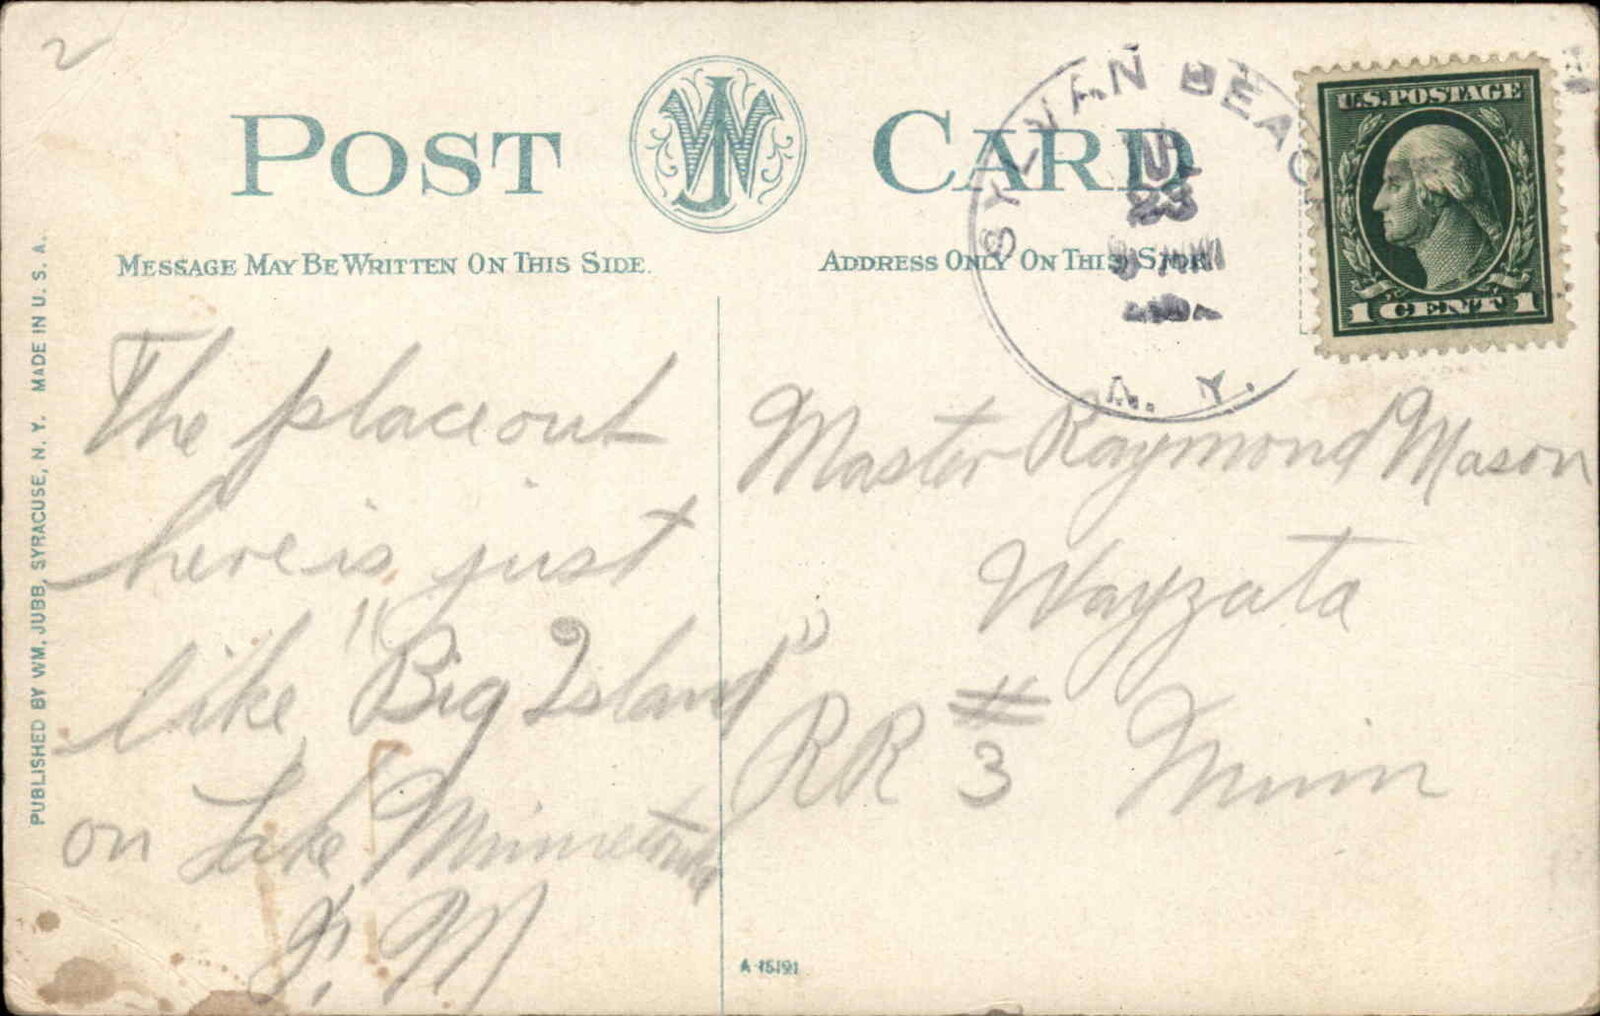 2
POST CARD
WJ
MESSAGE MAY BE WRITTEN ON THIS SIDE.
ADDRESS ONLY ON THIS SIDE.
SYLVAN BEACH
23
N. Y.
U.S. POSTAGE
1 CENT 1
PUBLISHED BY WM. JUBB, SYRACUSE, N. Y. MADE IN U. S. A.
The place out
here is just
like "Big Island"
on Lake Minnetonka
M
Master Raymond Mason
Wayzata
RR # 3 Minn
A-15191